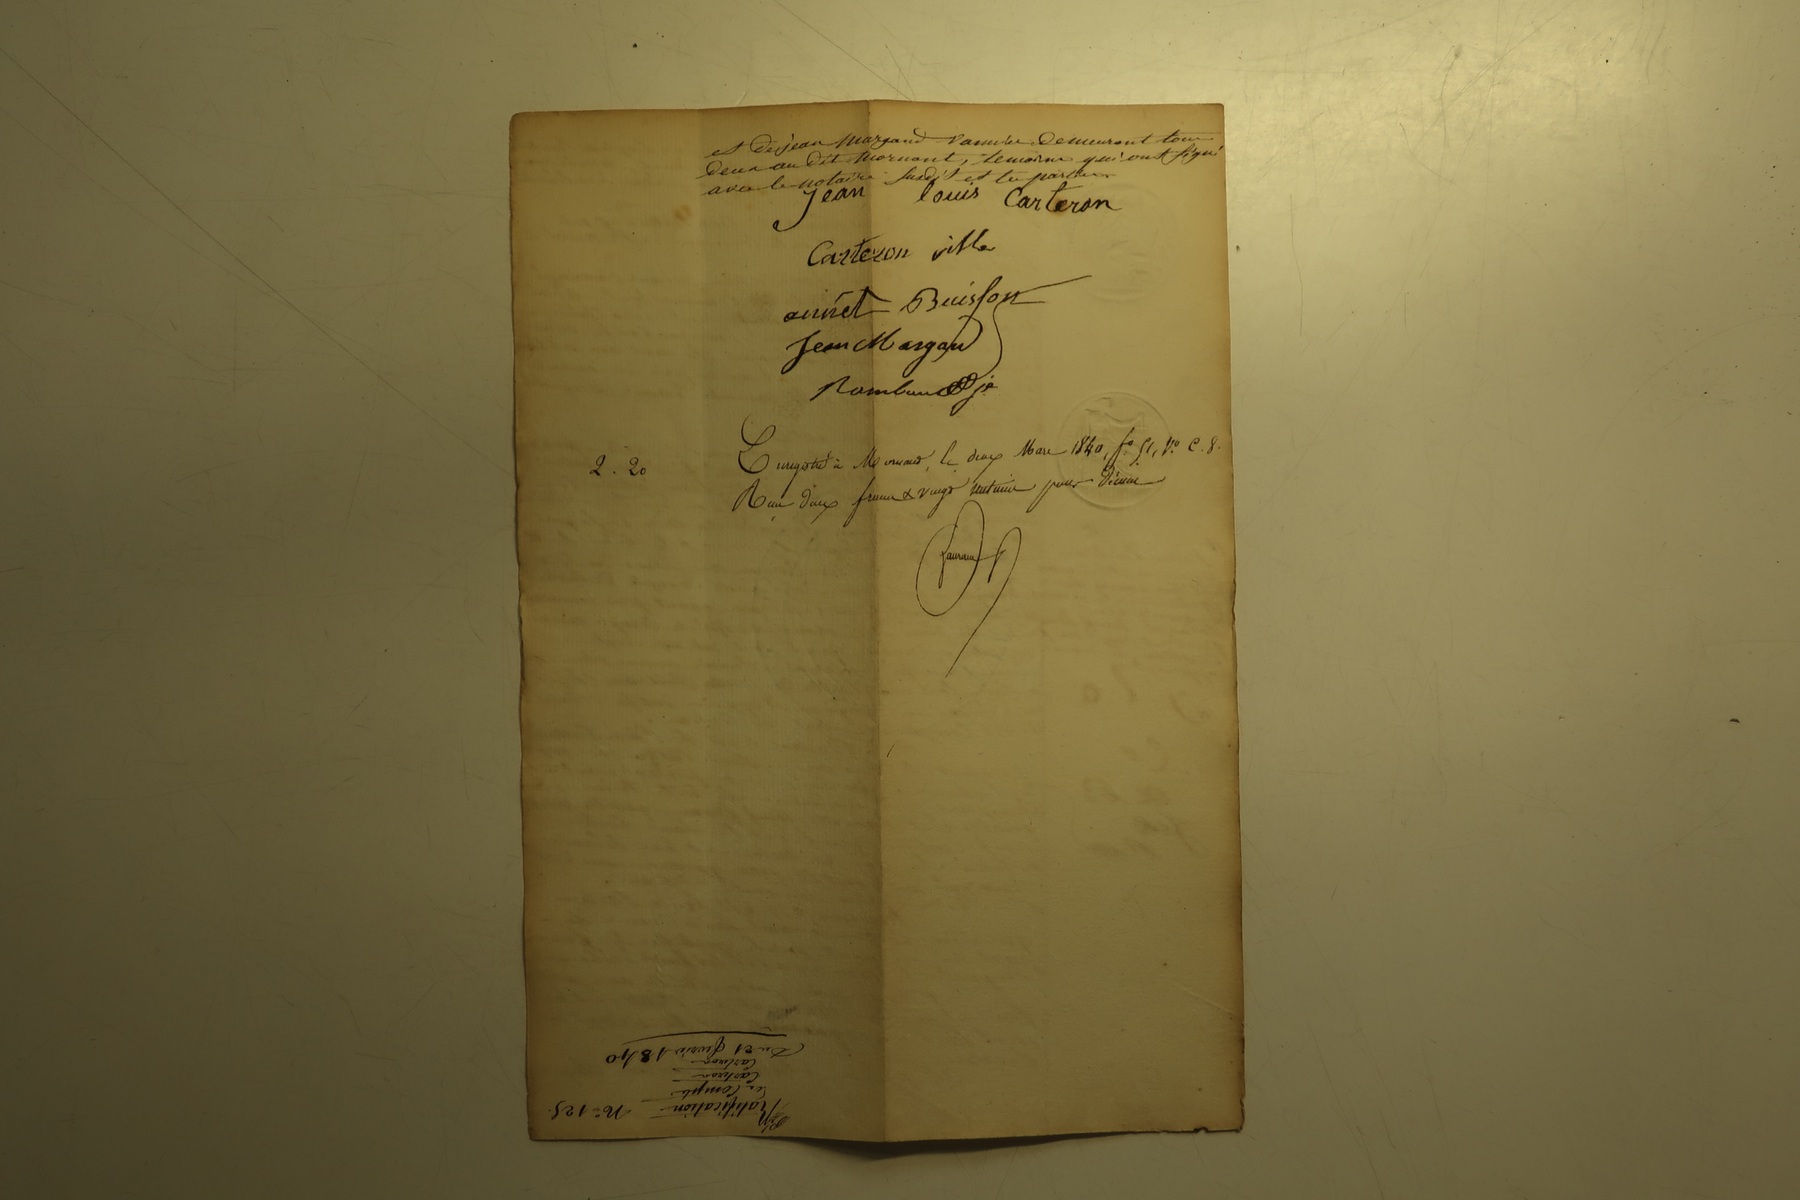 et de jean Margaud vannier demeurant tous
deux au dit Mornant, temoins qui ont signé
avec le notaire susdit et les parties
jean louis Carteron
Carteron
Buisson
Jean Margau
2. 20
Enregistré à Mornant, le deux Mars 1840, f° 51, V° C. 8.
Reçu deux francs & vingt centimes pour décime
N° 125
Ratification
de Compte
Carteron
Carteron
Du 21 fevrier 1840